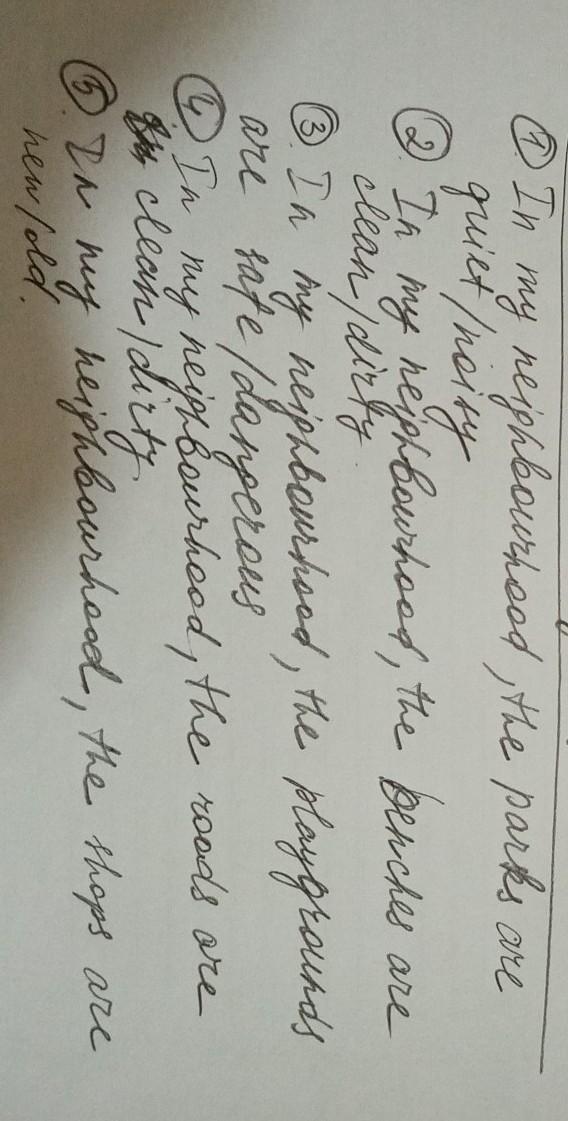 1. In my neighbourhood, the parks are
quiet/noisy
2. In my neighbourhood, the benches are
clean/dirty.
3. In my neighbourhood, the playgrounds
are safe/dangerous
4. In my neighbourhood, the roads are
clean/dirty.
5. In my neighbourhood, the shops are
new/old.